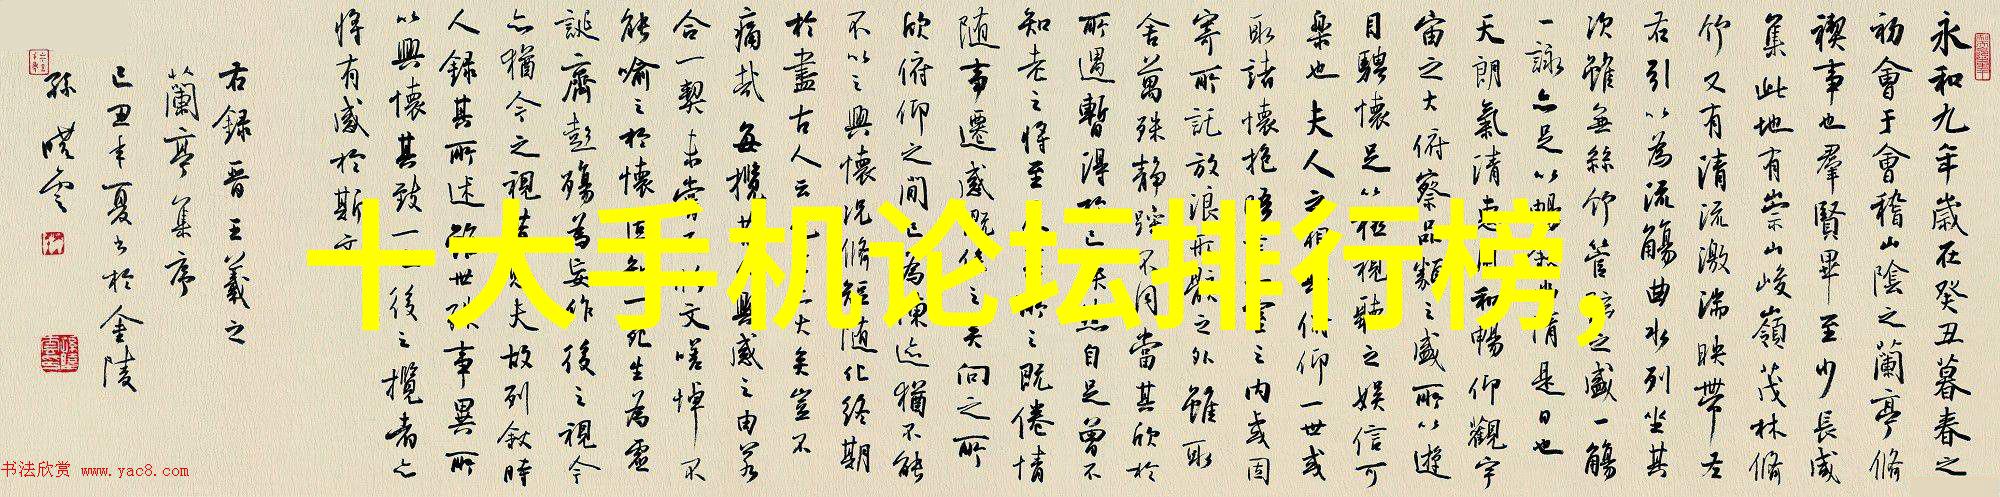 十大手机论坛排行榜,
永和九年歲在癸丑暮春之
初會于會稽山陰之蘭亭脩
禊事也羣賢畢至少長咸
集此地有崇山峻嶺茂林脩
竹又有清流激湍映帶左
右引以為流觴曲水列坐其
次雖無絲竹管弦之盛一觴
一詠亦足以暢敘幽情是日也
天朗氣清惠風和暢仰觀宇
宙之大俯察品類之盛所以遊
目騁懷足以極視聽之娛信可
樂也夫人之相與俯仰一世或
取諸懷抱悟言一室之內或因
寄所託放浪形骸之外雖取
舍萬殊靜躁不同當其欣於
所遇暫得於己怏然自足曾不
知老之將至及其所之既倦情
隨事遷感慨係之矣向之所
欣俯仰之間已為陳迹猶不能
不以之興懷況脩短隨化終期
於盡古人云死生亦大矣豈不
痛哉每攬昔人興感之由若
合一契未嘗不臨文嗟悼不
能喻之於懷固知一死生為虛
誕齊彭殤為妄作後之視今
亦猶今之視昔悲夫故列敘時
人錄其所述雖世殊事異所
以興懷其致一也後之攬者亦
將有感於斯文
右錄晉王羲之
蘭亭集序
己丑年夏書於金陵
孫曉雲
书法欣赏 www.yac8.com